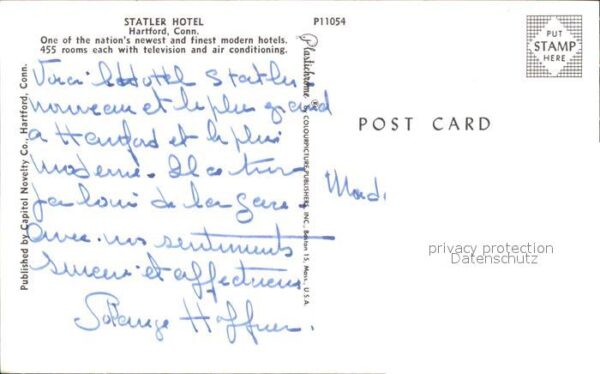 STATLER HOTEL
Hartford, Conn.
One of the nation's newest and finest modern hotels.
455 rooms each with television and air conditioning.
P11054
Published by Capitol Novelty Co., Hartford, Conn.
Plastichrome ® by COLOURPICTURE PUBLISHERS, INC., Boston 15, Mass., U.S.A.
PUT
STAMP
HERE
POST CARD
Voici l'Hotel Statler
nouveau et le plus grand
a Hartford et le plus
moderne. Il se trouve
pas loin de la gare.
Avec nos sentiments
sincères et affectueux
Solange Haffner.
privacy protection
Datenschutz